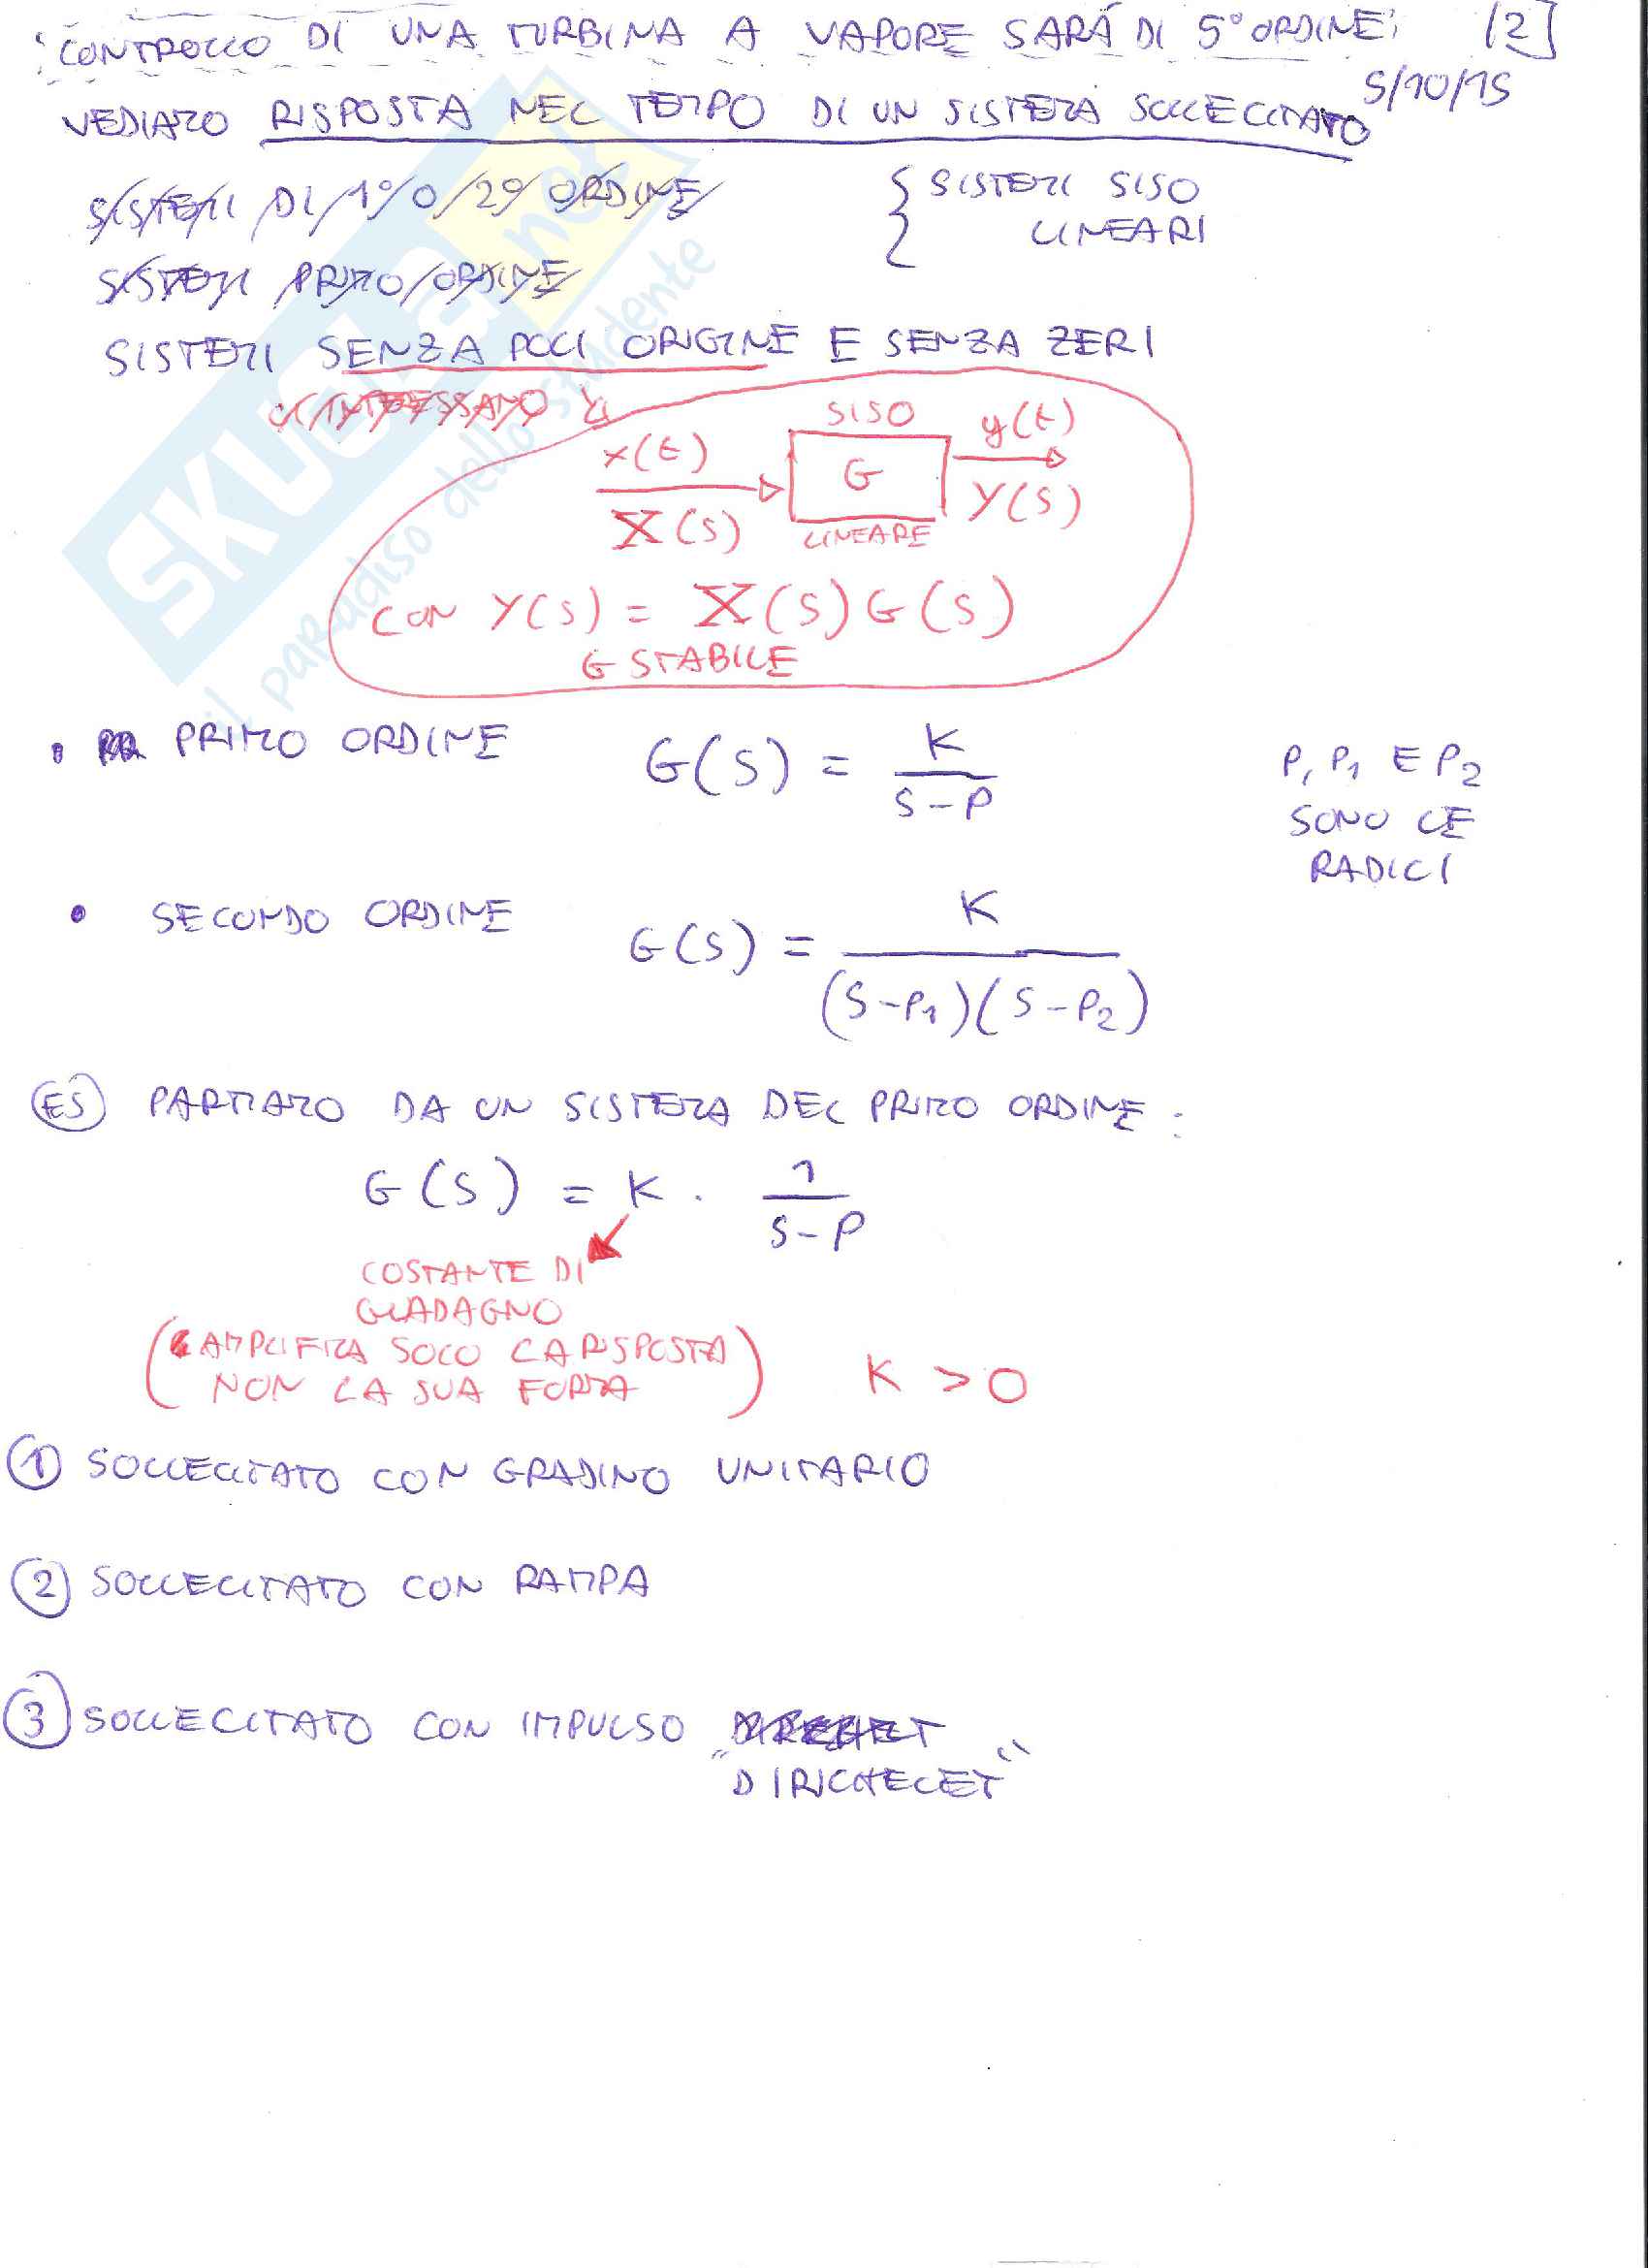 "CONTROLLO DI UNA TURBINA A VAPORE SARÁ DI 5° ORDINE" [2]
5/10/15
VEDIAMO RISPOSTA NEL TEMPO DI UN SISTEMA SOLLECITATO
SISTEMI DI 1° O 2° ORDINE
{ SISTEMI SISO
LINEARI
SISTEMI PRIMO ORDINE
SISTEMI SENZA POLI ORIGINE E SENZA ZERI
CI INTERESSANO
SISO
x(t) G y(t)
X(S) Y(S)
LINEARE
CON Y(S) = X(S) G(S)
G STABILE
• PRIMO ORDINE G(S) = K / (S-P)
P, P1 E P2
SONO LE
RADICI
• SECONDO ORDINE G(S) = K / ((S-P1)(S-P2))
ES PARTIAMO DA UN SISTEMA DEL PRIMO ORDINE:
G(S) = K · 1 / (S-P)
COSTANTE DI
GUADAGNO
(AMPLIFICA SOLO LA RISPOSTA
NON LA SUA FORMA) K > 0
1 SOLLECITATO CON GRADINO UNITARIO
2 SOLLECITATO CON RAMPA
3 SOLLECITATO CON IMPULSO
"DIRICHELET"
SKUOLA.net
il paradiso dello studente